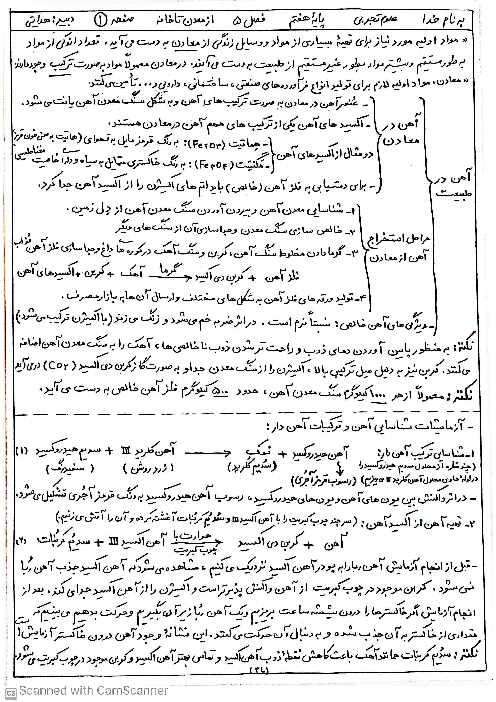 به نام خدا علوم تجربی پایهٔ هفتم فصل ۵ از معدن تا خانه صفحه ۱ دبیر: هدایتی
* مواد اولیه مورد نیاز برای تهیهٔ بسیاری از مواد و وسایل زندگی از معادن به دست می‌آید. تعداد اندکی از مواد
به طور مستقیم و بیشتر مواد بطور غیر مستقیم از طبیعت به دست می‌آیند. در معادن معمولاً مواد به صورت ترکیب وجود دارند
* معادن، مواد اولیه لازم برای تولید انواع فرآورده‌های صنعتی، ساختمانی، دارویی و... تأمین می‌کنند.
آهن در طبیعت
آهن در معادن
- عنصر آهن در معادن به صورت ترکیب‌های آهن و به شکل سنگ معدن آهن یافت می‌شود.
- اکسید های آهن یکی از ترکیب های مهم آهن در معادن هستند.
دو مثال از اکسیدهای آهن
هماتیت (Fe2O3): به رنگ قرمز مایل به قهوه‌ای
مگنتیت (Fe3O4): به رنگ خاکستری متمایل به سیاه و دارای خاصیت مغناطیسی
- برای دستیابی به فلز آهن (خالص) باید اتم های اکسیژن را از اکسید آهن جدا کرد.
مراحل استخراج آهن از معادن
۱- شناسایی معدن آهن و بیرون آوردن سنگ معدن آهن از دل زمین.
۲- خالص سازی سنگ معدن و جداسازی آن از سنگ‌های دیگر
۳- گرما دادن مخلوط سنگ آهن، کربن و سنگ آهک در کوره ها داغ و جداسازی فلز آهن مذاب
فلز آهن + کربن دی اکسید ← گرما آهک + کربن + اکسیدهای آهن
۴- تولید ورقه های فلز آهن به شکل‌های مختلف و ارسال آن ها به بازار مصرف.
- ویژگی های آهن خالص: نسبتاً نرم است. در اثر ضربه خم می‌شود و زنگ می زند (با اکسیژن ترکیب می‌شود.)
نکته: به منظور پایین آوردن دمای ذوب و راحت تر شدن ذوب ناخالصی‌ها، آهک را به سنگ معدن آهن اضافه
می‌کنند. کربن نیز به دلیل میل ترکیبی بالا، اکسیژن را از سنگ معدن جدا و به صورت گاز کربن دی اکسید (CO2) در می آید
نکته: معمولاً از هر ۱۰۰۰ کیلوگرم سنگ معدن آهن، حدود ۵۰۰ کیلوگرم فلز آهن خالص به دست می آید.
- آزمایشات شناسایی آهن و ترکیبات آهن دار:
۱- شناسایی ترکیب آهن دار: آهن هیدروکسید + نمک ← آهن کلرید III + سدیم هیدروکسید (۱)
(سدیم کلرید) (زرد روشن) (سفید رنگ)
(رسوب قرمز آجری)
- در اثر واکنش بین یون‌های آهن و یون‌های هیدروکسید، رسوب آهن هیدروکسید به رنگ قرمز آجری تشکیل می‌شود.
۲- تهیه آهن از اکسید آهن: (سر چند چوب کبریت را با آهن اکسید III و سدیم کربنات آغشته کرده و آن را آتش می زنیم.)
آهن + کربن دی اکسید ← حرارت با چوب کبریت آهن اکسید III + سدیم کربنات (۲)
- قبل از انجام آزمایش آهن ربا را به پودر آهن اکسید نزدیک می کنیم، مشاهده می‌شود که آهن اکسید جذب آهن ربا
نمی شود. کربن موجود در چوب کبریت از آهن واکنش پذیرتر است و اکسیژن را از آهن اکسید جدا می کند. بعد از
انجام آزمایش اگر خاکسترها را درون شیشه ساعت بریزیم و یک آهن ربا زیر آن بگیریم و حرکت بدهیم می بینیم که
مقداری از خاکستر به آن جذب شده و به دنبال آن حرکت می کنند. این نشانهٔ وجود آهن درون خاکستر آزمایش است
نکته: سدیم کربنات همانند آهک باعث کاهش نقطه ذوب آهن اکسید و تماس بهتر آهن اکسید و کربن موجود در چوب کبریت می‌شود.
CS Scanned with CamScanner